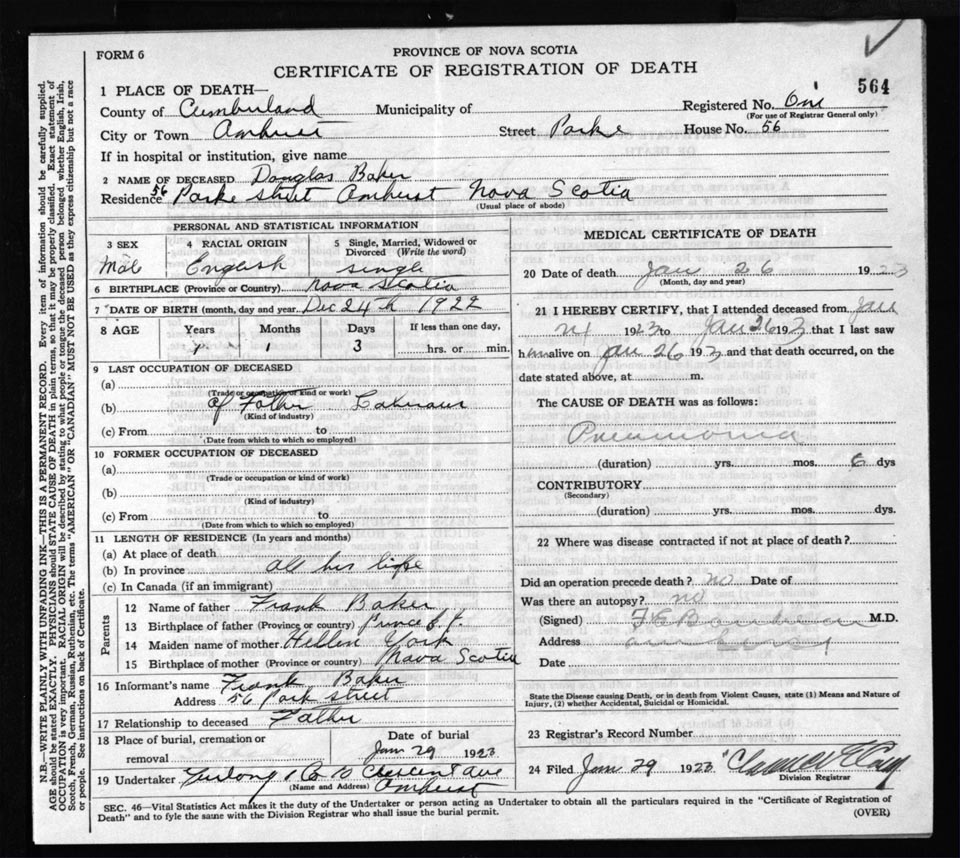 FORM 6
PROVINCE OF NOVA SCOTIA
CERTIFICATE OF REGISTRATION OF DEATH
564
1 PLACE OF DEATH—
County of Cumberland Municipality of Registered No. One
(For use of Registrar General only)
City or Town Amherst Street Parke House No. 56
If in hospital or institution, give name
2 NAME OF DECEASED Douglas Baker
Residence 56 Parke street Amhurst Nova Scotia
(Usual place of abode)
PERSONAL AND STATISTICAL INFORMATION
3 SEX 4 RACIAL ORIGIN 5 Single, Married, Widowed or Divorced (Write the word)
Male English single
6 BIRTHPLACE (Province or Country) nova scotia
7 DATE OF BIRTH (month, day and year) Dec 24th 1922
8 AGE Years Months Days If less than one day,
1 3 hrs. or min.
9 LAST OCCUPATION OF DECEASED
(a)
(Trade or occupation or kind of work)
(b) of Father
(Kind of industry)
(c) From to
(Date from which to which so employed)
10 FORMER OCCUPATION OF DECEASED
(a)
(Trade or occupation or kind of work)
(b)
(Kind of industry)
(c) From to
(Date from which to which so employed)
11 LENGTH OF RESIDENCE (In years and months)
(a) At place of death
(b) In province all his life
(c) In Canada (if an immigrant)
Parents
12 Name of father Frank Baker
13 Birthplace of father (Province or country) Prince E. I.
14 Maiden name of mother Hellen York
15 Birthplace of mother (Province or country) Nova Scotia
16 Informant's name Frank Baker
Address 56 Park street
17 Relationship to deceased Father
18 Place of burial, cremation or removal Date of burial
Jan 29 1923
19 Undertaker Furlong & Co 10 Crescent Ave
(Name and Address) Amhurst
MEDICAL CERTIFICATE OF DEATH
20 Date of death Jan 26 1923
(Month, day and year)
21 I HEREBY CERTIFY, that I attended deceased from Jan
1923 to Jan 26 1923 that I last saw
him alive on Jan 26 1923 and that death occurred, on the
date stated above, at m.
The CAUSE OF DEATH was as follows:
Pneumonia
(duration) yrs. mos. 6 dys
CONTRIBUTORY
(Secondary)
(duration) yrs. mos. dys.
22 Where was disease contracted if not at place of death?
Did an operation precede death? no Date of
Was there an autopsy? no
(Signed) M.D.
Address
Date
State the Disease causing Death, or in death from Violent Causes, state (1) Means and Nature of
Injury, (2) whether Accidental, Suicidal or Homicidal.
23 Registrar's Record Number
24 Filed Jan 29 1923
Division Registrar
SEC. 46—Vital Statistics Act makes it the duty of the Undertaker or person acting as Undertaker to obtain all the particulars required in the "Certificate of Registration of
Death" and to fyle the same with the Division Registrar who shall issue the burial permit.
(OVER)
N.B.—WRITE PLAINLY WITH UNFADING INK—THIS IS A PERMANENT RECORD. Every item of information should be carefully supplied.
AGE should be stated EXACTLY. PHYSICIANS should STATE CAUSE OF DEATH in plain terms, so that it may be properly classified. Exact statement of
OCCUPATION is very important. RACIAL ORIGIN will be described by stating to what people or tongue the deceased person belonged whether English, Irish,
Scotch, French, German, Russian, Ruthenian, etc. The terms "AMERICAN" OR "CANADIAN" MUST NOT BE USED as they express citizenship but not a race
or people. See instructions on back of Certificate.